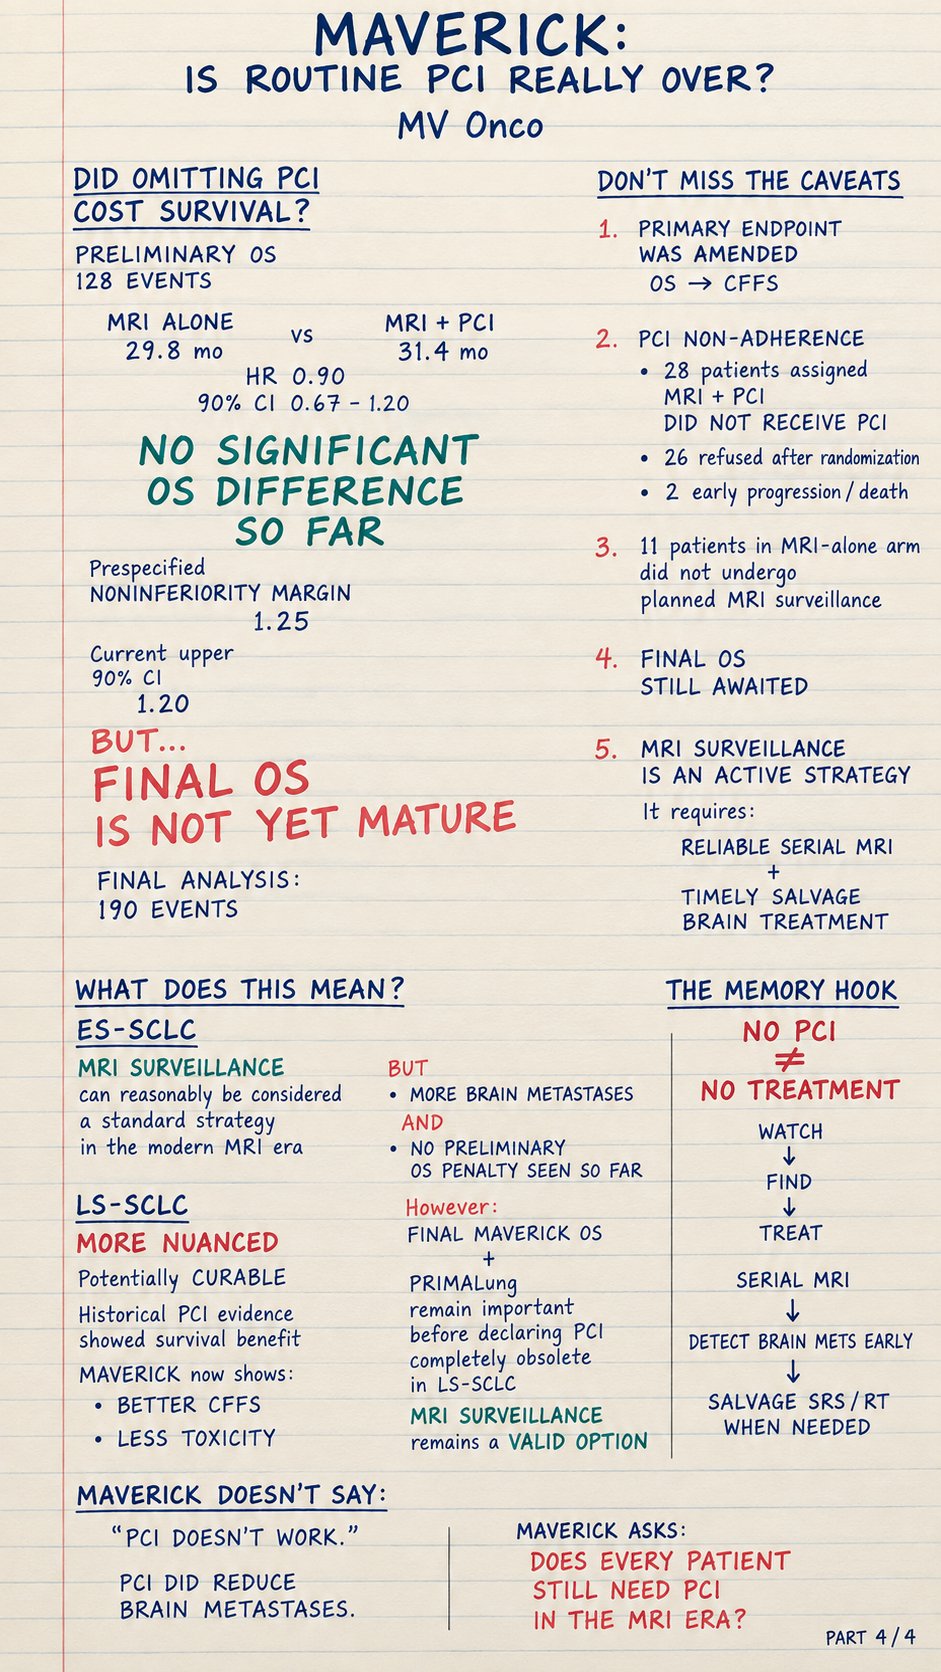 MAVERICK:
IS ROUTINE PCI REALLY OVER?
MV Onco
DID OMITTING PCI
COST SURVIVAL?
PRELIMINARY OS
128 EVENTS
MRI ALONE
29.8 mo
vs
MRI + PCI
31.4 mo
HR 0.90
90% CI 0.67 - 1.20
NO SIGNIFICANT
OS DIFFERENCE
SO FAR
Prespecified
NONINFERIORITY MARGIN
1.25
Current upper
90% CI
1.20
BUT...
FINAL OS
IS NOT YET MATURE
FINAL ANALYSIS:
190 EVENTS
DON'T MISS THE CAVEATS
1. PRIMARY ENDPOINT
WAS AMENDED
OS → CFFS
2. PCI NON-ADHERENCE
• 28 patients assigned
MRI + PCI
DID NOT RECEIVE PCI
• 26 refused after randomization
• 2 early progression / death
3. 11 patients in MRI-alone arm
did not undergo
planned MRI surveillance
4. FINAL OS
STILL AWAITED
5. MRI SURVEILLANCE
IS AN ACTIVE STRATEGY
It requires:
RELIABLE SERIAL MRI
+
TIMELY SALVAGE
BRAIN TREATMENT
WHAT DOES THIS MEAN?
ES-SCLC
MRI SURVEILLANCE
can reasonably be considered
a standard strategy
in the modern MRI era
LS-SCLC
MORE NUANCED
Potentially CURABLE
Historical PCI evidence
showed survival benefit
MAVERICK now shows:
• BETTER CFFS
• LESS TOXICITY
BUT
• MORE BRAIN METASTASES
AND
• NO PRELIMINARY
OS PENALTY SEEN SO FAR
However:
FINAL MAVERICK OS
+
PRIMALung
remain important
before declaring PCI
completely obsolete
in LS-SCLC
MRI SURVEILLANCE
remains a VALID OPTION
THE MEMORY HOOK
NO PCI
≠
NO TREATMENT
WATCH
↓
FIND
↓
TREAT
SERIAL MRI
↓
DETECT BRAIN METS EARLY
↓
SALVAGE SRS / RT
WHEN NEEDED
MAVERICK DOESN'T SAY:
"PCI DOESN'T WORK."
PCI DID REDUCE
BRAIN METASTASES.
MAVERICK ASKS:
DOES EVERY PATIENT
STILL NEED PCI
IN THE MRI ERA?
PART 4 / 4